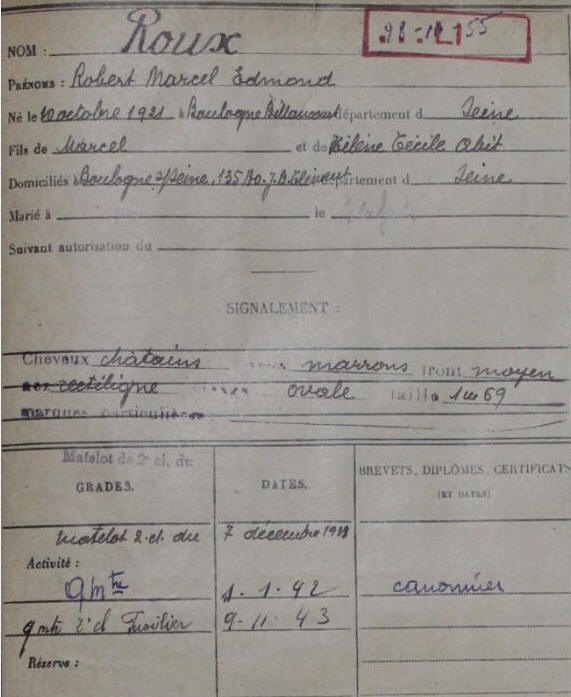 NOM : Roux
PRÉNOMS : Robert Marcel Edmond
Né le 10 octobre 1921 à Boulogne Billancourt Département d Seine
Fils de Marcel et de Hélène Cécile
Domiciliés à Boulogne s/Seine, 135 J.B. Clément Département d Seine
Marié à le
Suivant autorisation du
SIGNALEMENT :
Cheveux châtains yeux marrons front moyen
nez rectiligne ovale taille 1m69
marques particulières :
Matelot de 2e cl. du
GRADES. DATES. BREVETS, DIPLÔMES, CERTIFICATS
(ET DATES)
matelot 2.cl. du 7 décembre
Activité :
qmtre 1.1.42 canonnier
2e cl Fusilier 9-11.43
Réserve :